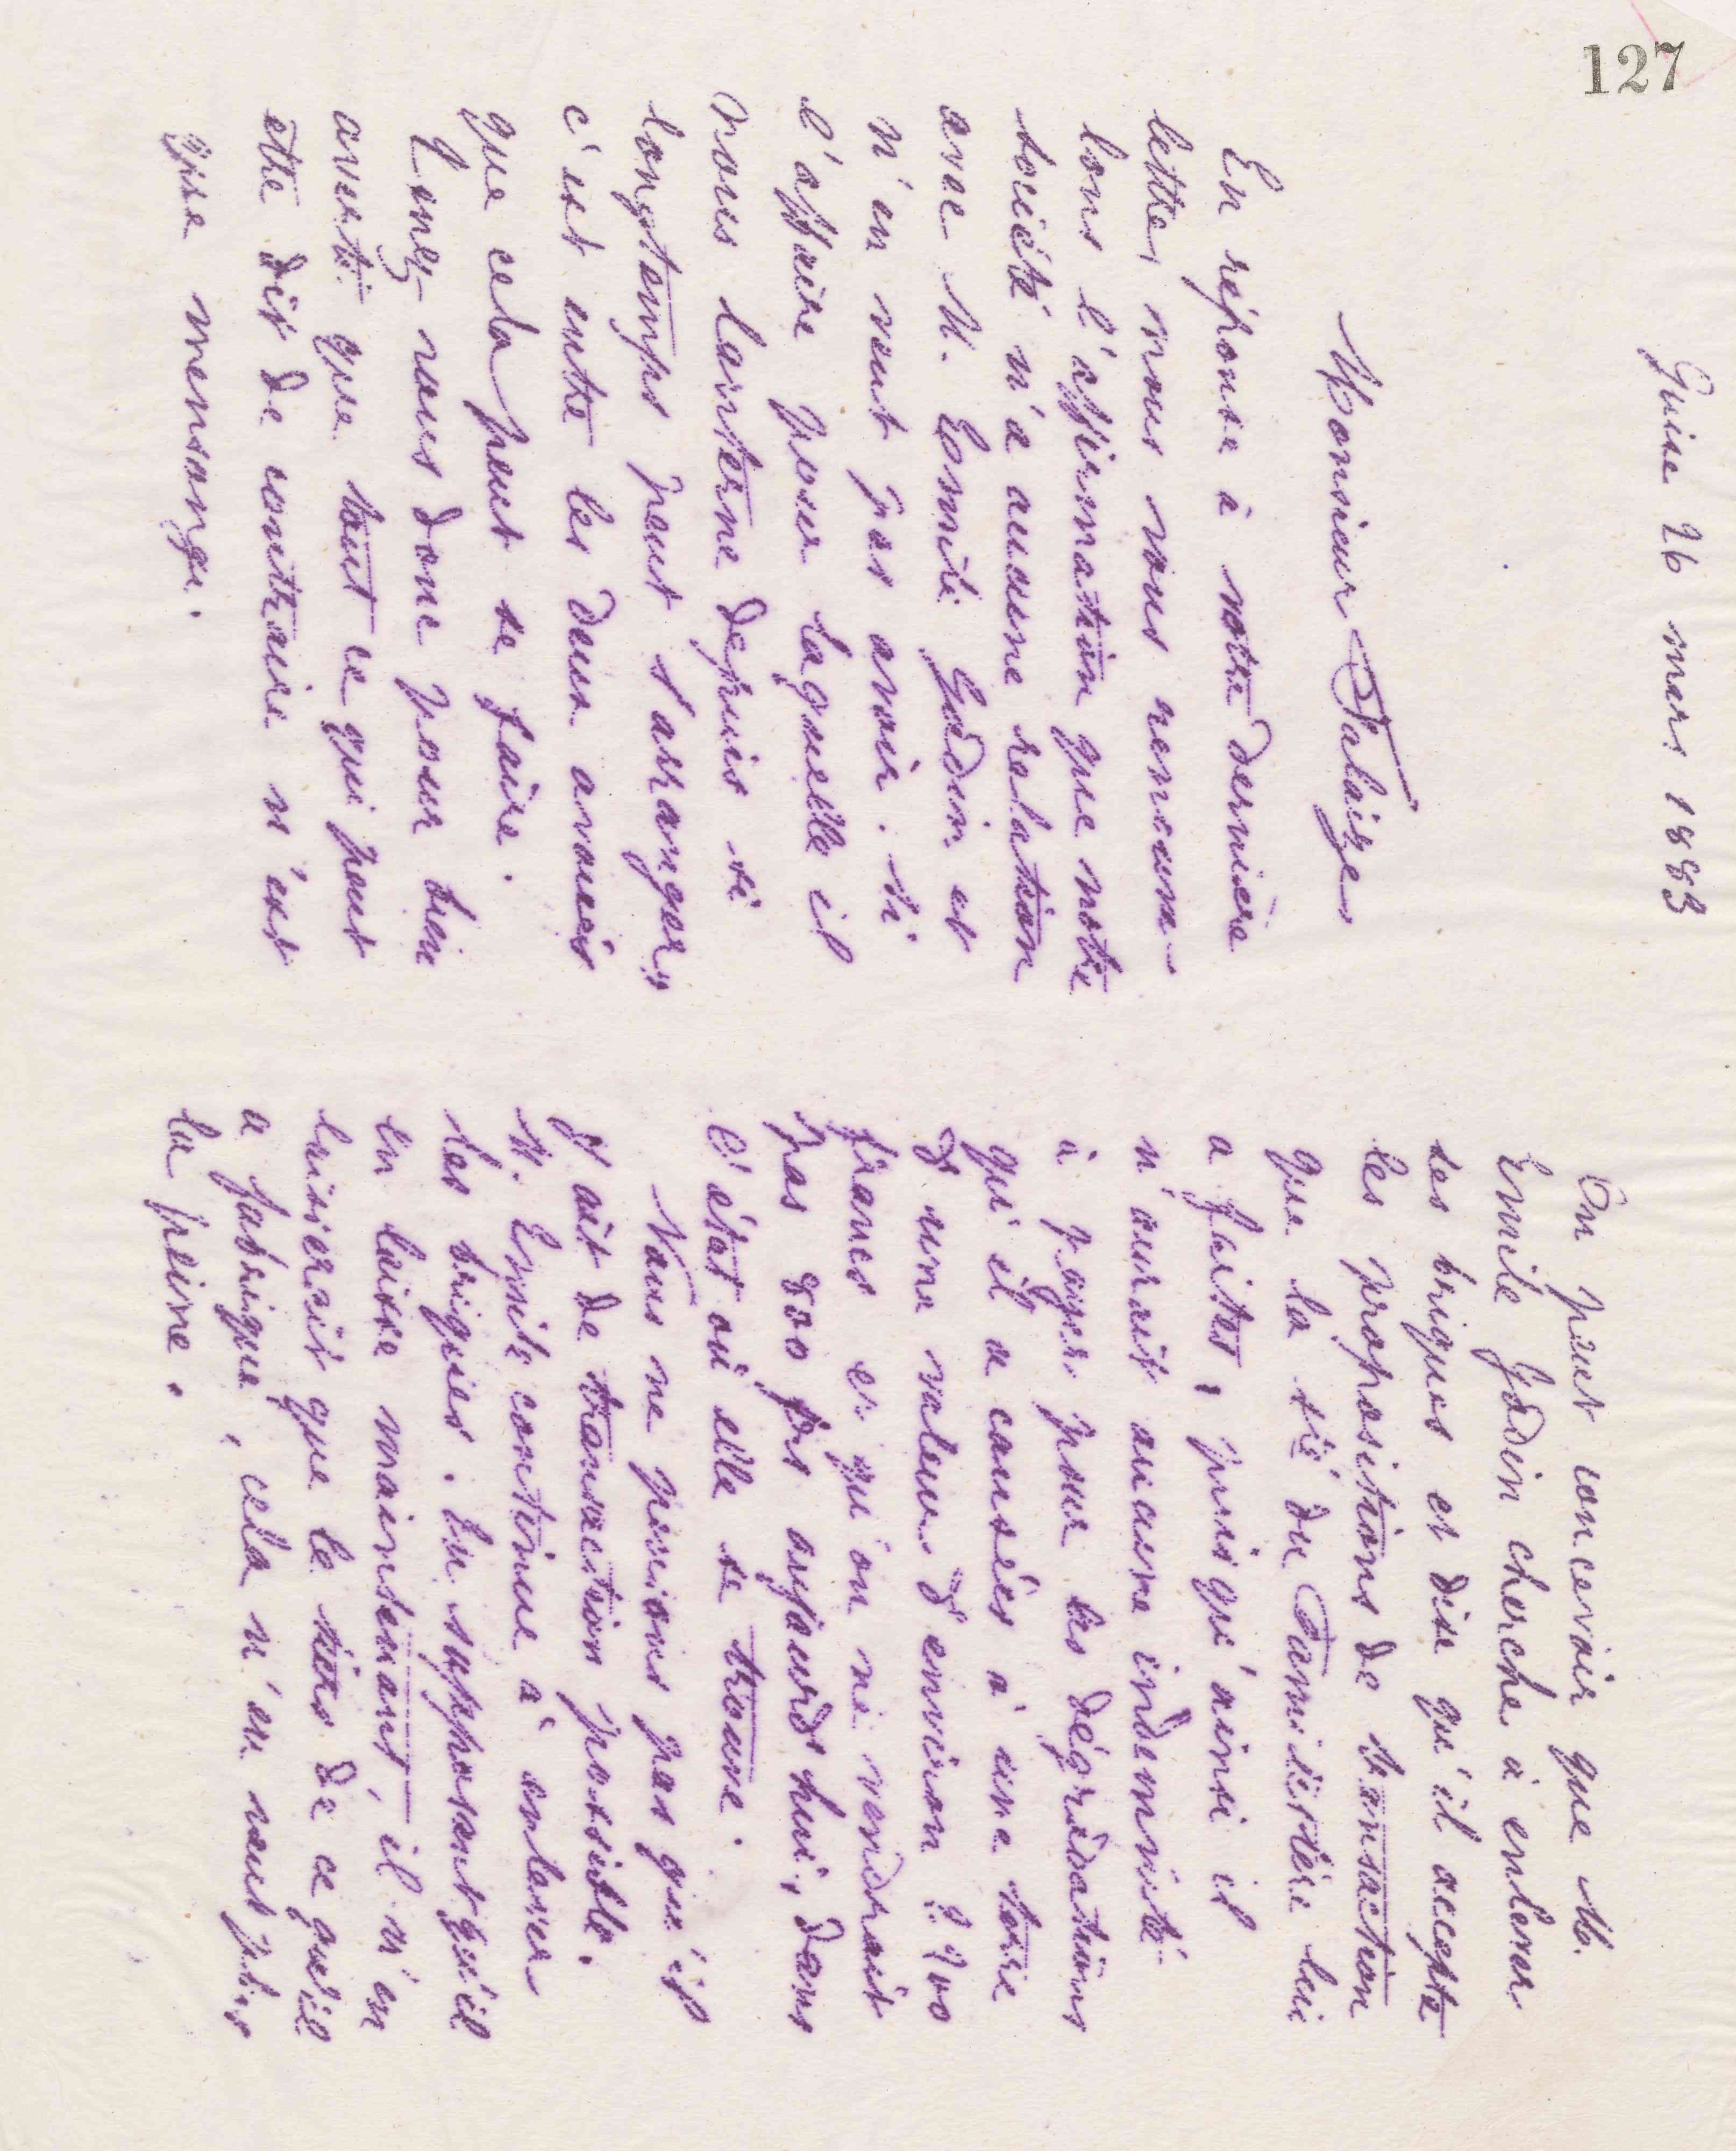 127
Guise 26 mars 1883
Monsieur Falaize
En réponse à votre dernière
lettre, nous vous renouve-
lons l'affirmation que notre
société n'a aucune relation
avec M. Emile Godin et
n'en veut pas avoir. Si
l'affaire pour laquelle il
nous lanterne depuis si
longtemps peut s'arranger,
c'est entre les deux avoués
que cela peut se faire.
Tenez vous donc pour bien
averti que tout ce qui peut
être dit de contraire n'est
que mensonge.
On peut concevoir que M.
Emile Godin cherche à enlever
ses briques et dise qu'il accepte
les propositions de transaction
que la sté du Familistère lui
a faites, puisqu'ainsi il
n'aurait aucune indemnité
à payer pour les dégradations
qu'il a causées à une terre
d'une valeur d'environ
francs et qu'on ne vendrait
pas 800 frs aujourd'hui, dans
l'état où elle se trouve.
Nous ne pensions pas qu'il
y ait de transaction possible.
M. Emile continue à enlever
les briques. En supposant qu'il
en laisse maintenant, il n'en
laisserait que le tiers de ce qu'il
a fabriqué, cela n'en vaut plus
la peine.